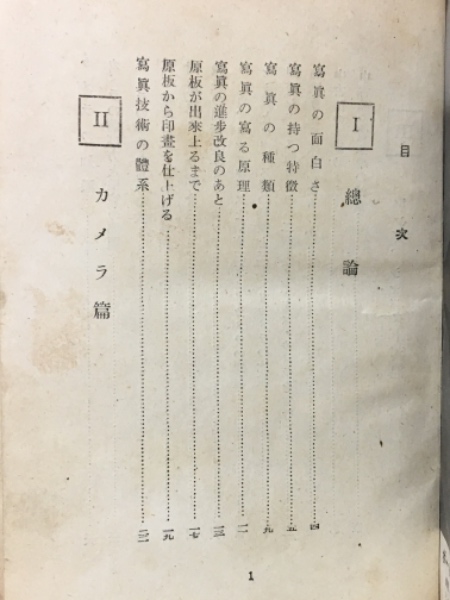 目次
I 總論
寫眞の面白さ……四
寫眞の持つ特徵……五
寫眞の種類……九
寫眞の寫る原理……一一
寫眞の進步改良のあと……一三
原板が出來上るまで……一七
原板から印畫を仕上げる……一九
寫眞技術の體系……二二
II カメラ篇
1